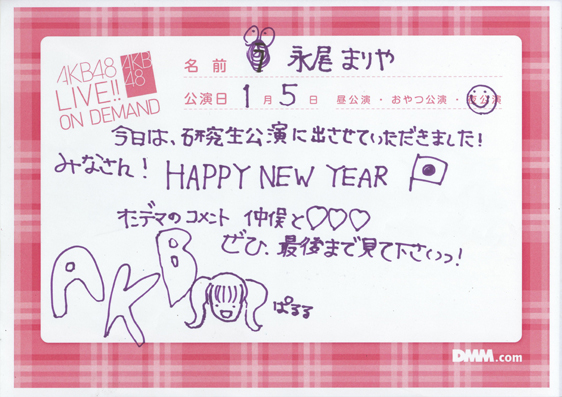 AKB48
LIVE!!
ON DEMAND
AKB
48
名前 永尾まりや
公演日 1月5日 昼公演・おやつ公演・夜公演
今日は、研究生公演に出させていただきました!
みなさん! HAPPY NEW YEAR
オンデマのコメント 仲俣と♡♡♡
ぜひ、最後まで見て下さいっ!
AKB
ぱるる
DMM.com